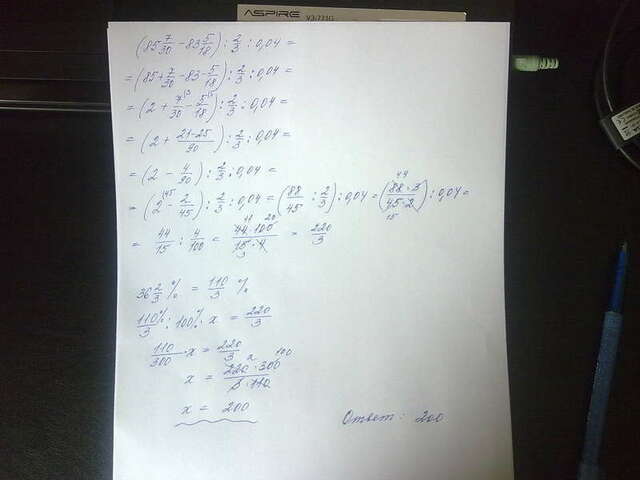 ASPIRE V3-771G
(85 7/30 - 83 5/18) : 2/3 : 0,04 =
= (85 + 7/30 - 83 - 5/18) : 2/3 : 0,04 =
= (2 + 7/30 - 5/18) : 2/3 : 0,04 =
= (2 + 21-25/90) : 2/3 : 0,04 =
= (2 - 4/90) : 2/3 : 0,04 =
= (2 - 2/45) : 2/3 : 0,04 = (88/45 : 2/3) : 0,04 = (88·3/45·2) : 0,04 =
= 44/15 : 4/100 = 44·100/15·4 = 220/3
36 2/3 % = 110/3 %
110%/3 : 100% · x = 220/3
110/300 · x = 220/3
x = 220·300/3·110
x = 200
Ответ: 200